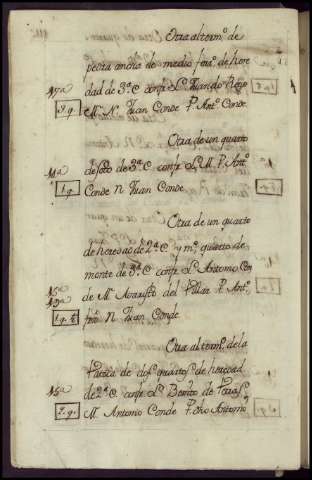 Otra al term.º de
pedra ancha de medio ferr.º de here
dad de 3ª C confr. L.
17ª
M. N. Juan Conde P. Ant.º Conde
3 q.
Otra de un quarto
de soto de 3ª C confr. L. M. P. Ant.º
11ª
Conde N. Juan Conde
1 q.
Otra de un quarto
de heredad de 2ª C. y m.º quarto de
monte de 3ª C confr. L. Antonio Con
15ª
de M. del Pillar P. Ant.º
19ª
N. Juan Conde
1 q. ½
Otra al term.º de la
de dos quartos de heredad
15ª
de 2ª C. confr. L. Benito de
2 q.
M. Antonio Conde P. dho Antonio